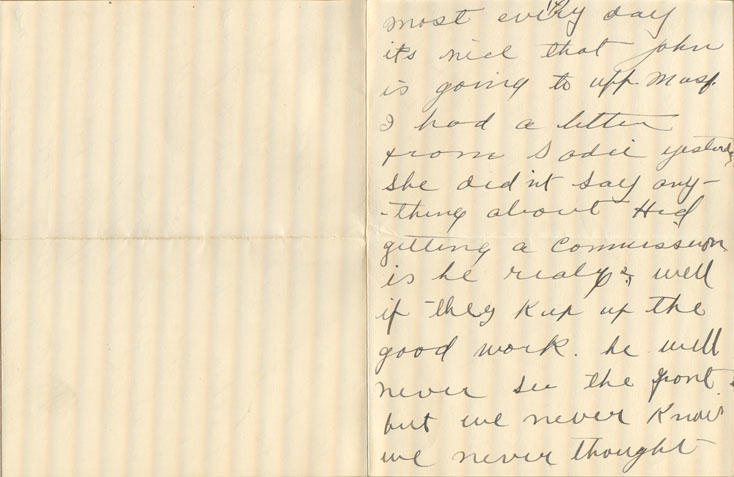 most every day
its nice that John
is going to upp. Musq.
I had a letter
from Sadie yesterday
she did'nt say any-
-thing about Hid
getting a commission
is he realy? well
if they kup up the
good work. he will
never see the front.
but we never know
we never thought